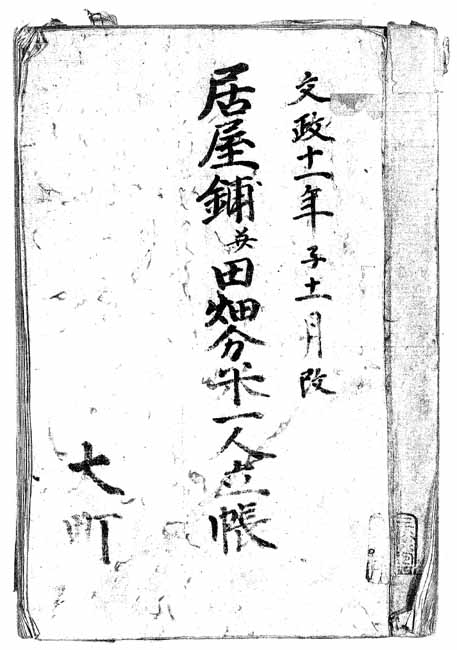 文政十一年子十一月改
居屋鋪并田畑分米一人立帳
大町